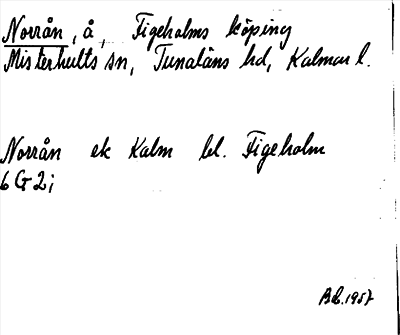 Norrån, å, Figeholms köping
Misterhults sn, Tunaläns hd, Kalmar l.
Norrån ek Kalm bl. Figeholm
6 G 2 i
1957